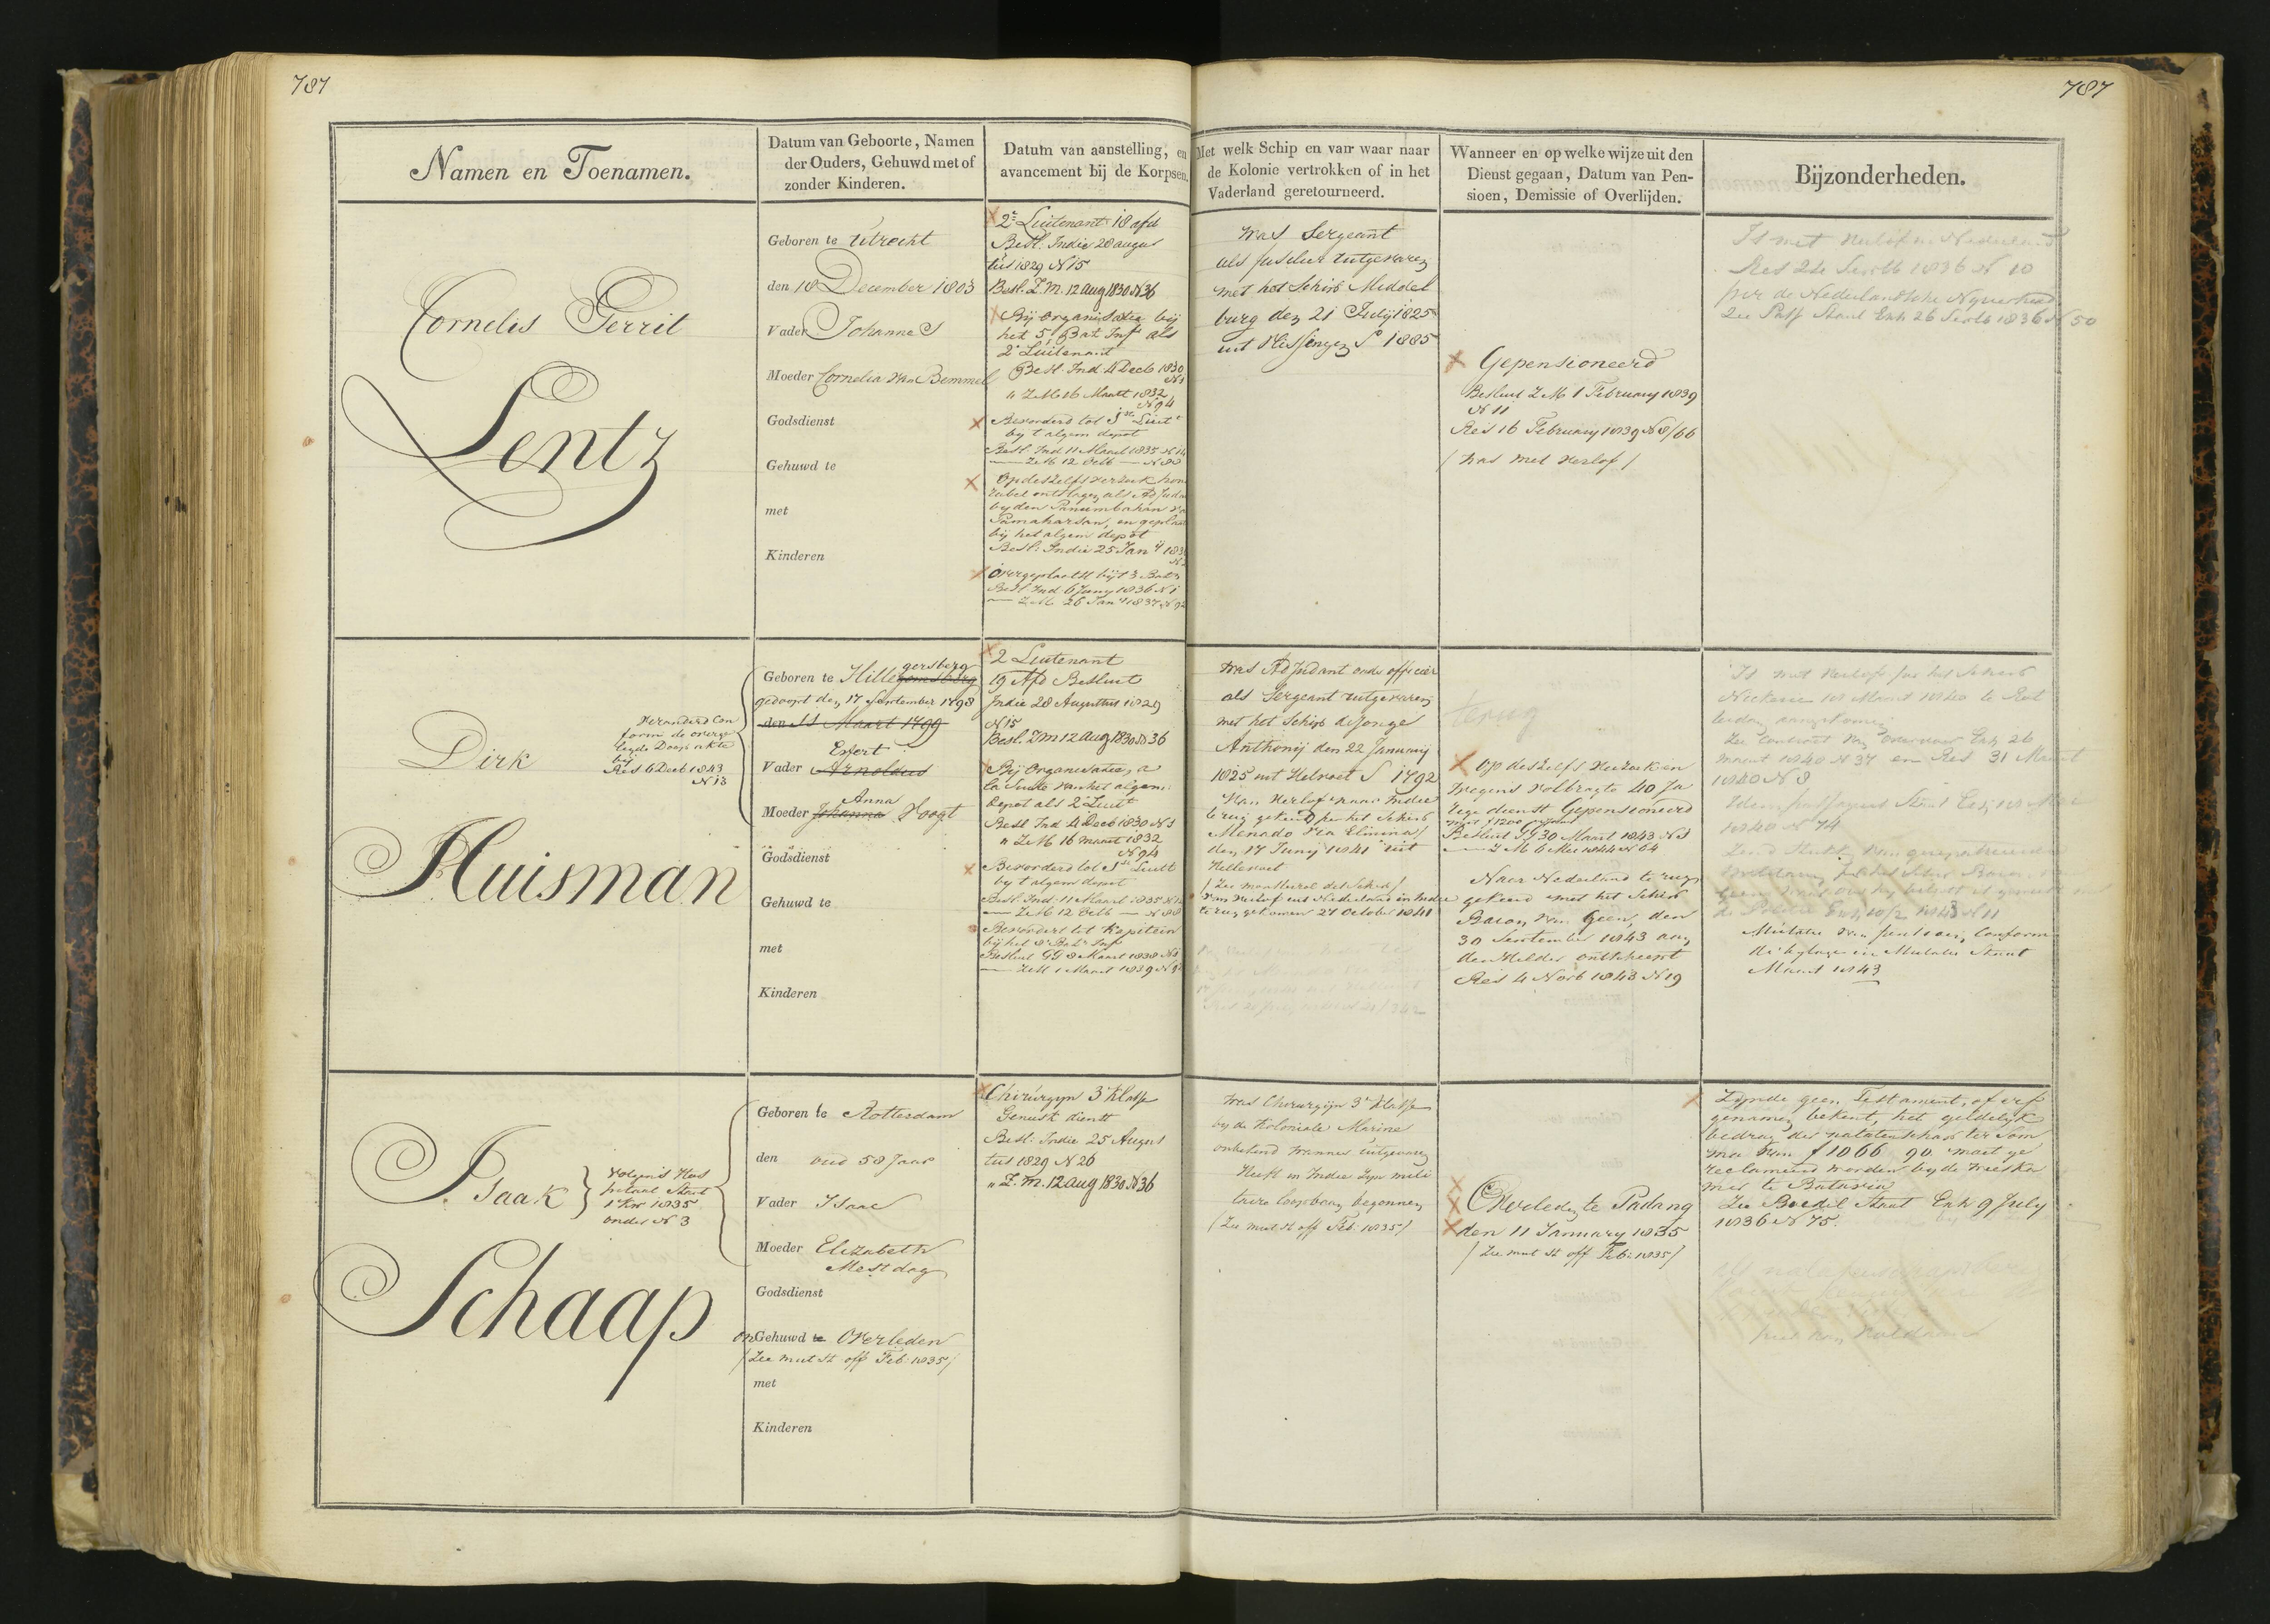 787
787
Namen en Toenamen.
Datum van Geboorte, Namen
der Ouders, Gehuwd met of
zonder Kinderen.
Datum van aanstelling, en
avancement bij de Korpsen.
Met welk Schip en van waar naar
de Kolonie vertrokken of in het
Vaderland geretourneerd.
Wanneer en op welke wijze uit den
Dienst gegaan, Datum van Pen-
sioen, Demissie of Overlijden.
Bijzonderheden.
Cornelis Gerrit
Lentz
Geboren te Utrecht
den 18 December 1803
Vader Johannes
Moeder Cornelia van Bemmel
Godsdienst
Gehuwd te
met
Kinderen
2e Luitenant 18 afd
Besl. Indie 28 augus
tus 1829 N 15
Besl. Z.M. 12 aug 1830 N 36
Bij organisatie bij
het 5e Bat Inf als
2e Luitenant
Besl. Ind 4 Decb 1830
N 1
" ZM 16 Maart 1832
N 94
Bevorderd tot 1ste Luit
by t algem depot
Besl. Ind 11 Maart 1835 N 14
— ZM 12 Octb — N 88
Op deszelfs verzoek hono
rabel ontslagen als Adjudan
by den Panumbahan va
Pamakassan, en geplaa
bij het algem depot
Besl. Indie 25 Jany 183
Overgeplaatst bij t 3 Bat
Besl. Ind 6 Juny 1836 N 1
— ZM 26 Jany 1837 N 92
was Sergeant
als fuselier uitgevaren
met het Schip Middel
burg den 21 July 1825
uit Vlissingen S 1885
Gepensioneerd
Besluit ZM 1 February 1839
N 11
Res 16 February 1839 N 8/66
/ was met verlof /
Is met verlof in Nederland
Res 22 Septb 1836 N 10
per de Nederlandsche Nyverheid
Zie Pass Staat Exh 26 Septb 1836 N 50
Dirk
Huisman
veranderd con
form de overge
legde Doop akte
bij
Res 6 Decb 1843
N 13
Geboren te Hillegomsberg
gersberg
gedoopt den 17 September 1798
den 11 Maart 1799
Evert
Vader Arnoldus
Anna
Moeder Johanna Voogt
Godsdienst
Gehuwd te
met
Kinderen
2 Luitenant
19 Afd Besluit
Indie 28 Augustus 1829
N 15
Besl. ZM 12 aug 1830 N 36
Bij Organisatie, a
la Suite van het algem
depot als 2e Luit
Besl Ind 4 Decb 1830 N 1
" ZM 16 Maart 1832
N 94
Bevorderd tot 1ste Luit
by t algem depot
Besl. Ind 11 Maart 1835 N 14
— ZM 12 Octb — N 88
Bevorderd tot Kapitein
bij het 8e Bat Inf
Besluit GG 8 Maart 1838 N 1
— ZM 1 Maart 1839 N 92
was Adjudant onder officier
als Sergeant uitgevaren
met het Schip de Jonge
Anthonij den 22 January
1825 uit Helvoet S 1792
Van verlof naar Indie
terug gekeerd per het Schip
Menado via Elmina /
den 17 Juny 1841 uit
Hellevoet
/ Zie monsterrol det Schip /
van verlof uit Nederland in Indie
terug gekomen 27 October 1841
terug
Op deszelfs verzoek en
wegens volbragte 40 Ja
rige dienst Gepensioneerd
met f 1200 pensioen
Besluit GG 30 Maart 1843 N 8
— ZM 6 Mei 1844 N 64
Naar Nederland terug
gekeerd met het Schip
Baron van Geen, den
30 September 1843 aan
den Helder ontscheept
Res 4 Novb 1843 N 19
Is met verlof per het Schip
Nickerie 18 Maart 1840 te Rot
terdam aangekomen
Zie contract van overvoer Exh 26
Maart 1840 N 37 en Res 31 Maart
1840 N 8
1840 N 74
Mutatie van pensioen, Conform
de bylage in Mutatie Staat
Maart 1843
Isaak
Schaap
volgens Hos
pitaal Staat
1e Kw 1835
onder N 3
Geboren te Rotterdam
den oud 58 Jaar
Vader Isaac
Moeder Elizabeth
Mestdag
Godsdienst
onGehuwd te Overleden
/ Zie mut st off Feb. 1835 /
met
Kinderen
Chirurgyn 3e Klasse
Geneesk dienst
Besl. Indie 25 Augus
tus 1829 N 26
" Z.M. 12 aug 1830 N 36
was Chirurgijn 3e Klasse
by de Koloniale Marine
onbekend wanneer uitgevaren
Heeft in Indie zyn mili
taire loopbaan begonnen
/ Zie mut st off Feb. 1835 /
Overleden te Padang
den 11 January 1835
/ Zie mut st off Feb. 1835 /
Zynde geen Testament, of erf
genamen bekent, het geldelyk
bedrag der nalatenschap ter som
ma van f 1066 90 moet ge
reclameerd worden by de weeska
mer te Batavia
Zie Boedel Staat Exh 9 July
1836 N 75.